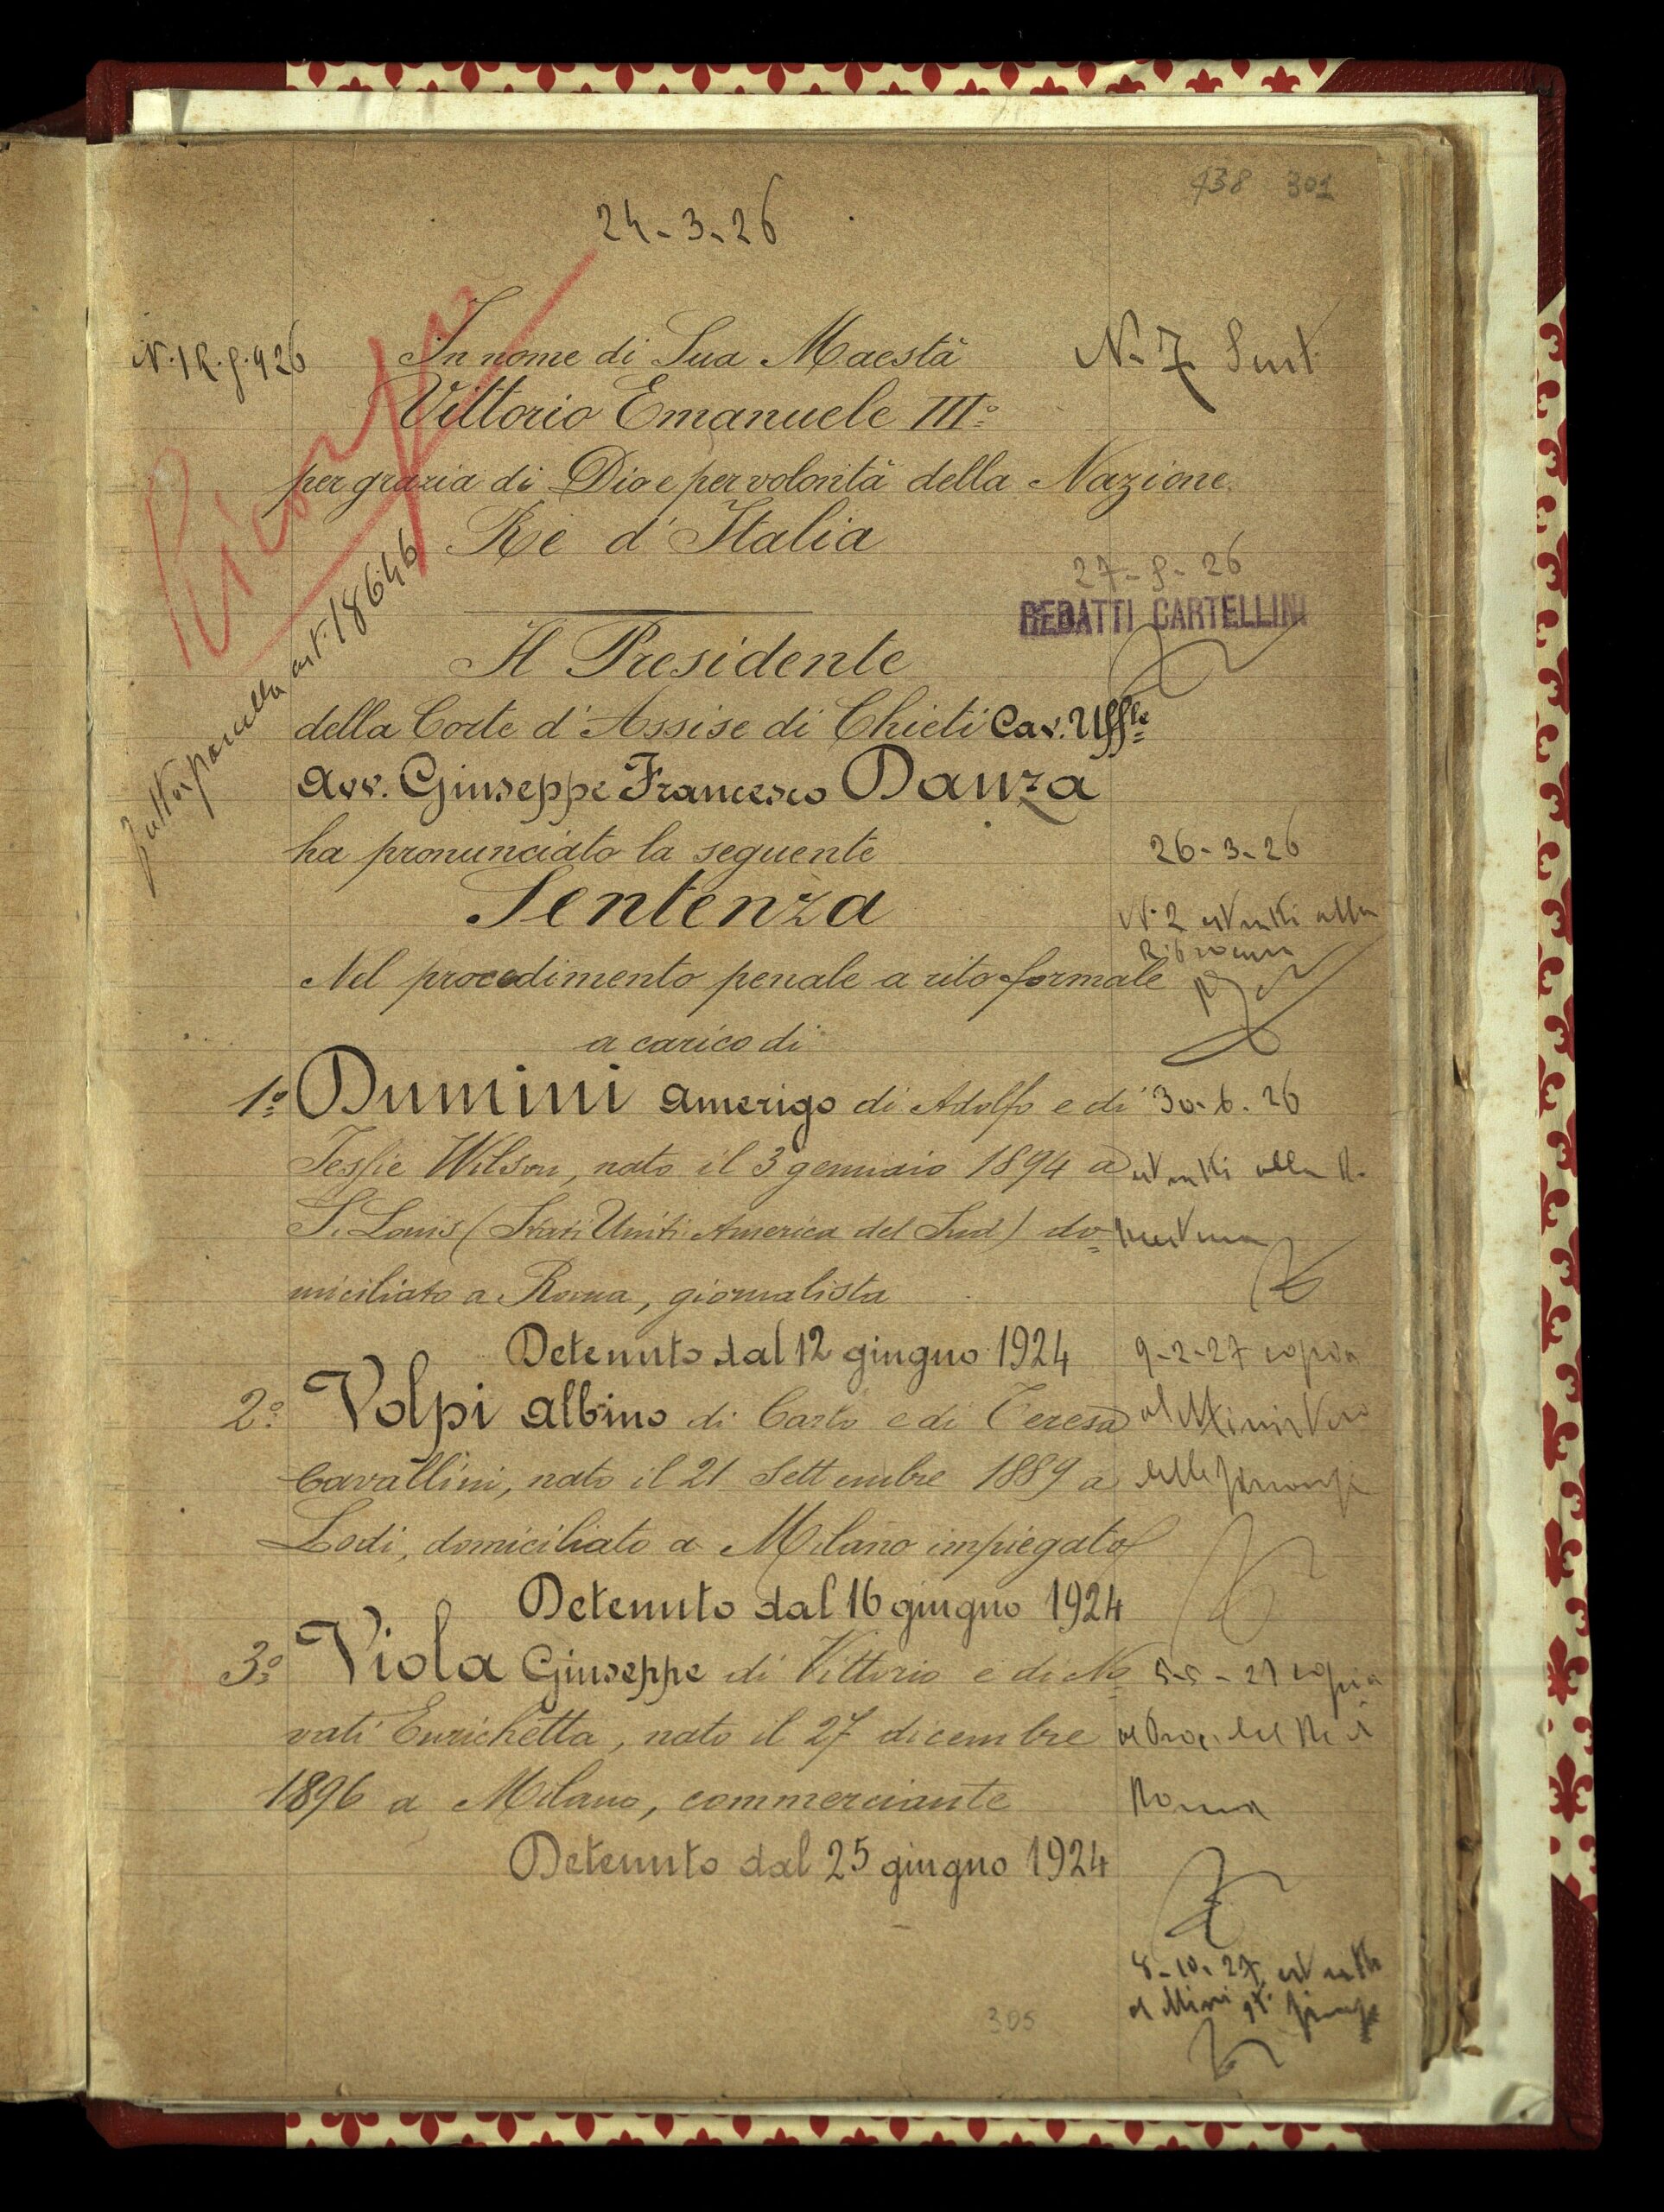 438 301
24-3-26
N. 1 R. g. 926
In nome di Sua Maestà
N. 7 Sent.
Vittorio Emanuele III°
per grazia di Dio e per volontà della Nazione
Re d'Italia
27-5-26
REDATTI CARTELLINI
Il Presidente
della Corte d'Assise di Chieti Cav. Uffle
Avv. Giuseppe Francesco Danza
ha pronunciato la seguente
26-3-26
Sentenza
N. 2 estratti alla
Nel procedimento penale a rito formale
a carico di
1° Dumini Amerigo di Adolfo e di
30-6-26
Jessie Wilson, nato il 3 gennaio 1894 a
estratti alla R.
S. Louis (Stati Uniti America del Sud) do=
Questura
miciliato a Roma, giornalista
Detenuto dal 12 giugno 1924
9-2-27 copia
2° Volpi Albino di Carlo e di Teresa
al Ministero
Cavallini, nato il 21 Settembre 1889 a
delle
Lodi, domiciliato a Milano impiegato
Detenuto dal 16 giugno 1924
3° Viola Giuseppe di Vittorio e di No=
5-5-27 copia
vati Enrichetta, nato il 27 dicembre
al Proc. del Re di
1896 a Milano, commerciante
Roma
Detenuto dal 25 giugno 1924
8-10-27 estratto
al Min
305